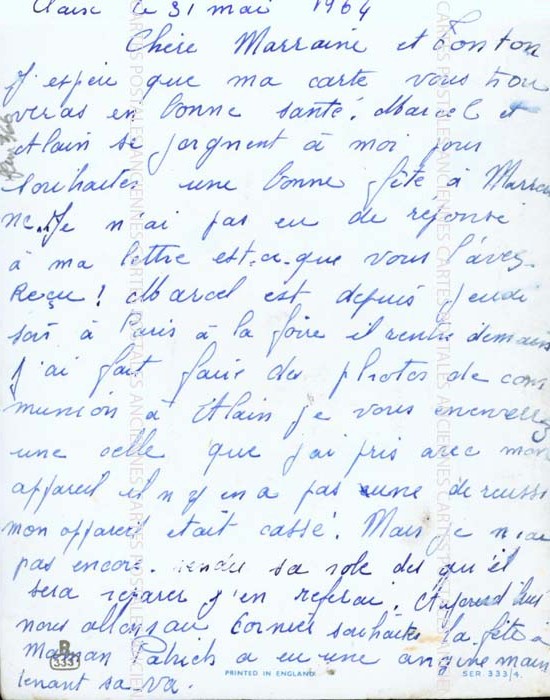 le 31 mai 1964
Chère Marraine et Tonton
J'espère que ma carte vous trou
veras en bonne santé. Marcel et
Alain se joignent à moi pour
souhaiter une bonne fête à Marrai
ne. Je n'ai pas eu de réponse
à ma lettre est-ce-que vous l'avez
Reçu! Marcel est depuis jeudi
soir à Paris à la foire il rentre demain
J'ai fait faire des photos de com
munion à Alain je vous enverrez
une celle que j'ai pris avec mon
appareil il n'y en a pas une de reussi
mon appareil était cassé. Mais je n'ai
pas encore. rendu sa robe des qu'il
sera reparer j'en referai. Aujourd'hui
nous allons au souhaiter la fête à
Maman Patrick a eu une angine main
tenant sa va.
B
333
PRINTED IN ENGLAND
SER. 333/4.
CARTES POSTALES ANCIENNES